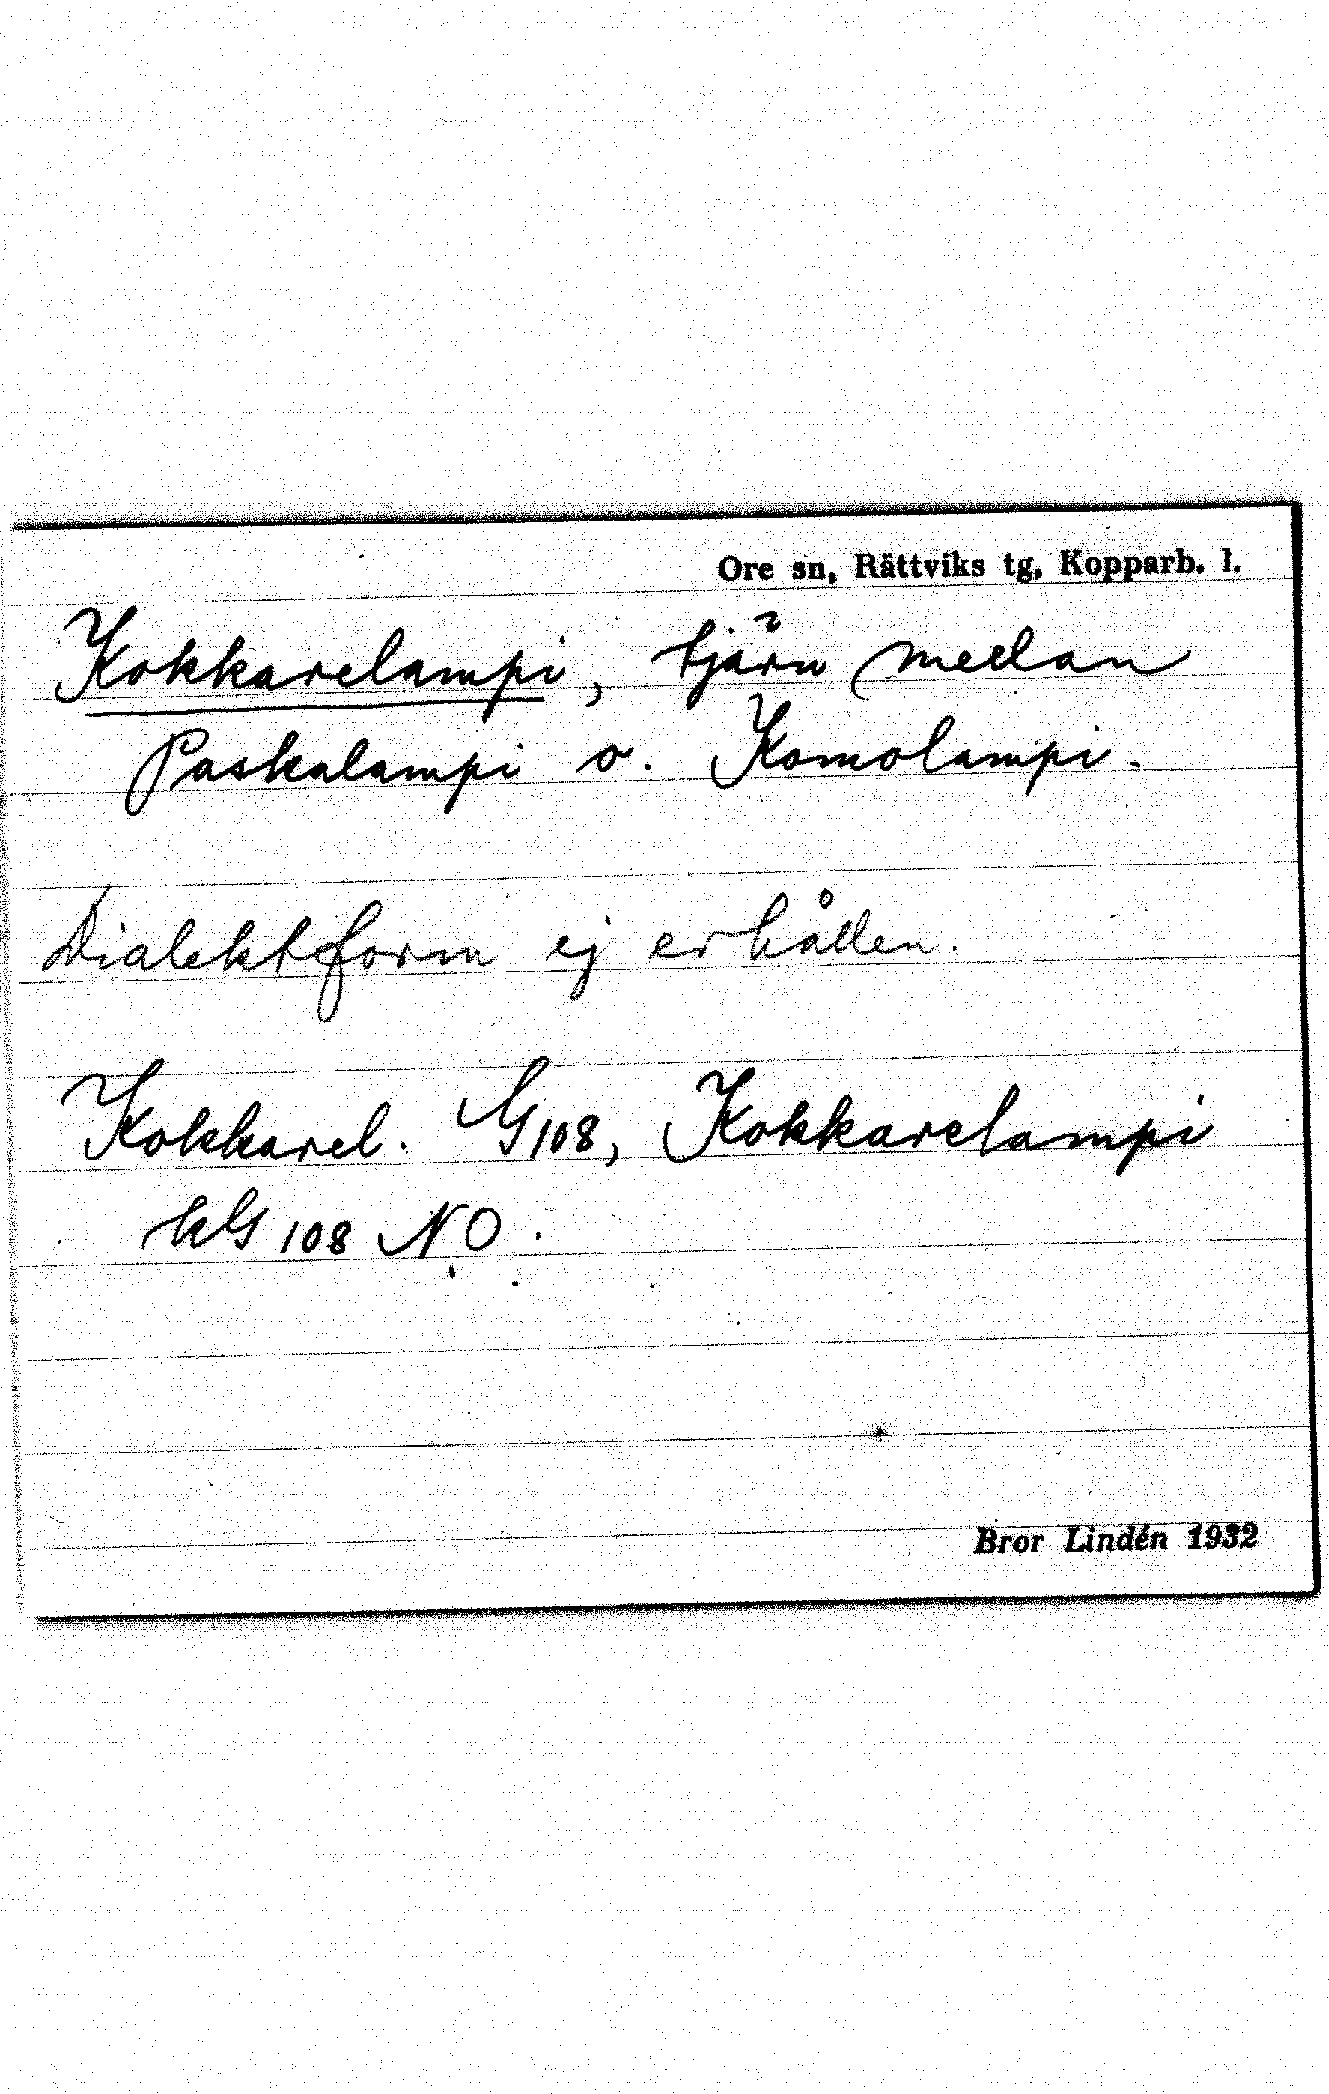 Ore sn, Rättviks tg, Kopparb. l.
Kokkarelampi, tjärn mellan
Paskalampi o. Komolampi.
Dialektform ej erhållen.
Kokkarel. G108, Kokkarelampi
kG 108 NO.
Bror Lindén 1932